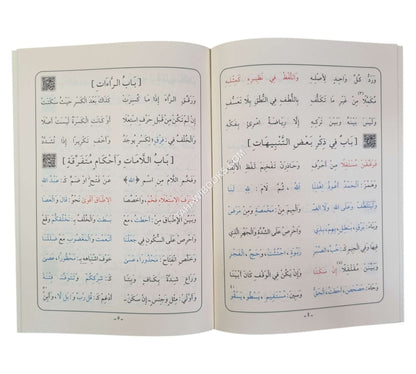 وَرَدُّ كُلِّ وَاحِدٍ لِأَصْلِهِ وَاللَّفْظُ فِي نَظِيرِهِ كَمِثْلِهِ
مُكَمَّلًا مِنْ غَيْرِ مَا تَكَلُّفِ بِاللُّطْفِ فِي النُّطْقِ بِلَا تَعَسُّفِ
وَلَيْسَ بَيْنَهُ وَبَيْنَ تَرْكِهِ إِلَّا رِيَاضَةُ امْرِئٍ بِفَكِّهِ
[ بَابٌ فِي ذِكْرِ بَعْضِ التَّنْبِيهَاتِ ]
فَرَقِّقَنْ مُسْتَفِلًا مِنْ أَحْرُفِ وَحَاذِرَنْ تَفْخِيمَ لَفْظِ الْأَلِفِ
اَلْحَمْدُ أَعُوذُ إِهْدِنَا اللهُ ثُمَّ لَامَ لِلَّهِ لَنَا
وَلْيَتَلَطَّفْ وَعَلَى اللهِ وَلَا الضْ وَالْمِيمَ مِنْ مَخْمَصَةٍ وَمِنْ مَرَضْ
وَاحْرِصْ عَلَى الشِّدَّةِ وَالْجَهْرِ الَّذِي
كَـ: حُبِّ الصَّبْرِ رَبْوَةٍ اجْتُثَّتْ وَحَجِّ الْفَجْرِ
وَبَيِّنَنْ مُقَلْقَلًا إِنْ سَكَنَا وَإِنْ يَكُنْ فِي الْوَقْفِ كَانَ أَبْيَنَا
وَحَاءَ: حَصْحَصَ أَحَطْتُ الْحَقُّ وَسِينَ: مُسْتَقِيمِ يَسْطُو يَسْقُو
- ٨ -
[ بَابُ الرَّاءَاتِ ]
وَرَقِّقِ الرَّاءَ إِذَا مَا كُسِرَتْ كَذَاكَ بَعْدَ الْكَسْرِ حَيْثُ سَكَنَتْ
إِنْ لَمْ تَكُنْ مِنْ قَبْلِ حَرْفِ اسْتِعْلَا أَوْ كَانَتِ الْكَسْرَةُ لَيْسَتْ أَصْلَا
وَالْخُلْفُ فِي فِرْقٍ لِكَسْرٍ يُوجَدُ وَأَخْفِ تَكْرِيرًا إِذَا تُشَدَّدُ
[ بَابُ اللَّامَاتِ وَأَحْكَامٍ مُتَفَرِّقَةٍ ]
وَفَخِّمِ اللَّامَ مِنِ اسْمِ «اللهِ» عَنْ فَتْحٍ اوْ ضَمٍّ كَـ: عَبْدُ اللهِ
وَحَرْفَ الِاسْتِعْلَاءِ فَخِّمْ وَاخْصُصَا الِاطْبَاقَ أَقْوَى نَحْوُ: قَالَ وَالْعَصَا
وَبَيِّنِ الْإِطْبَاقَ مِنْ: أَحَطْتُ مَعْ بَسَطْتَ وَالْخُلْفُ بِـ: نَخْلُقْكُمْ وَقَعْ
وَاحْرِصْ عَلَى السُّكُونِ فِي جَعَلْنَا أَنْعَمْتَ وَالْمَغْضُوبِ مَعْ ضَلَلْنَا
وَخَلِّصِ انْفِتَاحَ: مَحْذُورًا عَسَى خَوْفَ اشْتِبَاهِهِ بِـ: مَحْظُورًا عَصَى
وَرَاعِ شِدَّةً بِكَافٍ وَبِتَا كَـ: شِرْكِكُمْ وَتَتَوَفَّى فِتْنَتَا
وَأَوَّلَيْ: مِثْلٍ وَجِنْسٍ إِنْ سَكَنْ أَدْغِمْ كَـ: قُلْ رَبِّ وَبَل لَّا وَأَبِنْ
- ٩ -